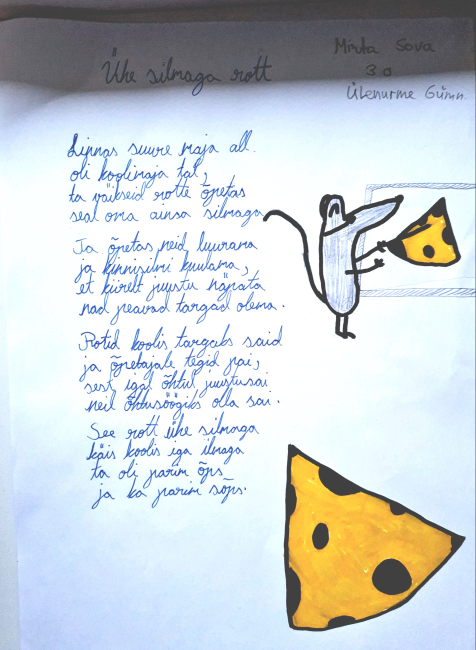 Ühe silmaga rott
Mirta Sova
3 a
Ülenurme Gümn.
Linnas suure maja all
oli koolimaja tal,
ta väikseid rotte õpetas
seal oma ainsa silmaga.
Ta õpetas neid luurama
ja kinnisilmi kuulama,
et kiirelt juustu näpata
nad peavad targad olema.
Rotid koolis targaks said
ja õpetajale tegid pai,
sest igal õhtul juustusai
neil õhtusöögiks olla sai.
See rott ühe silmaga
käis koolis iga ilmaga
ta oli parim õps
ja ka parim sõps.